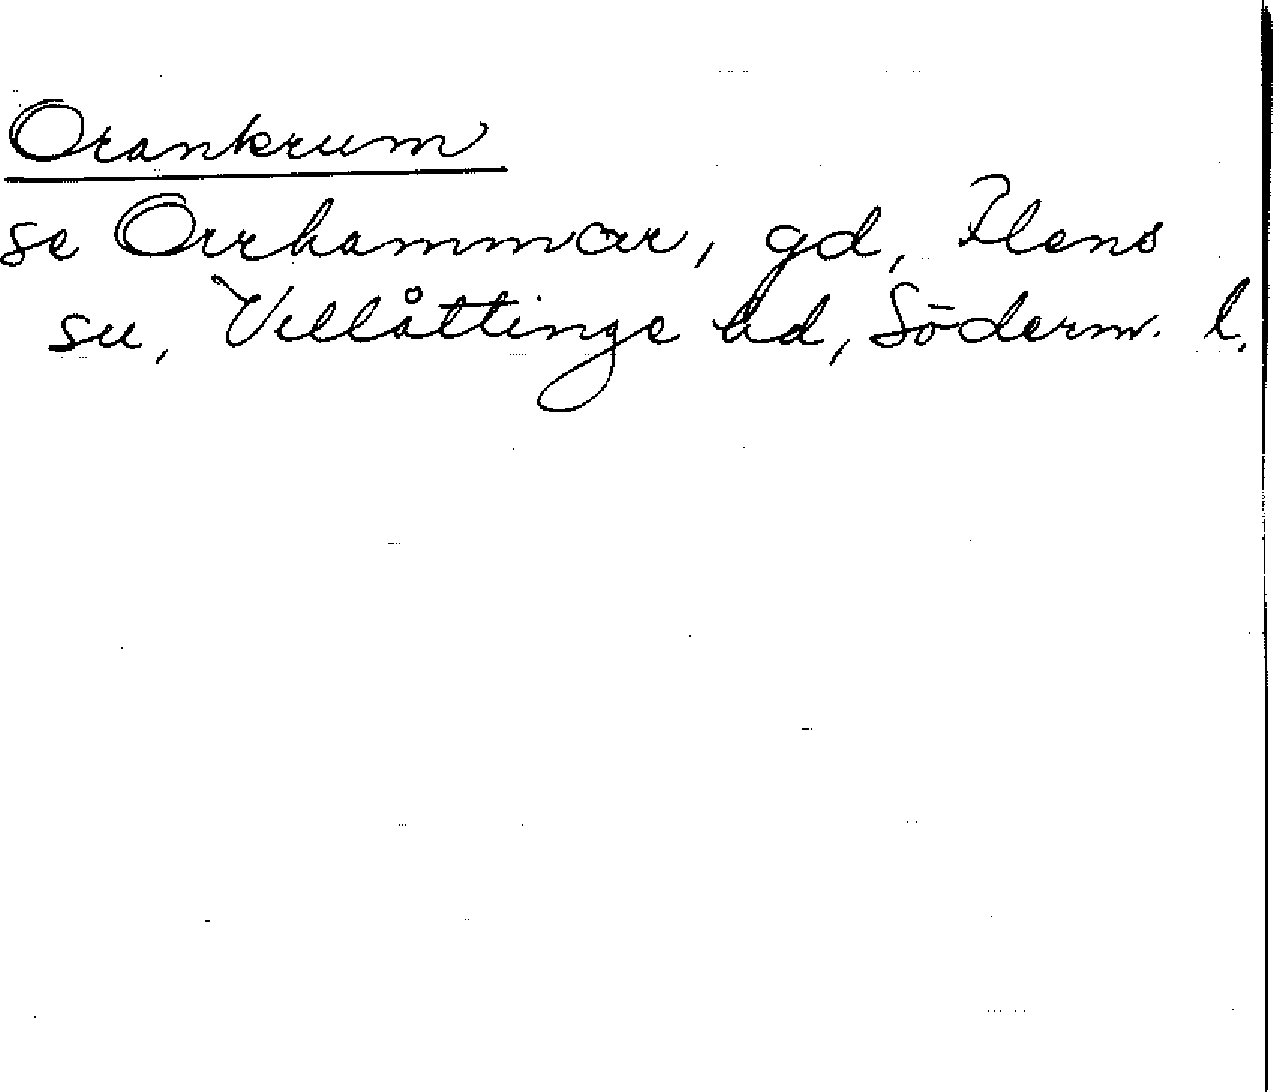 Orankrum
se Orrhammar, gd, Flens
su, Villåttinge hd, Söderm. l.